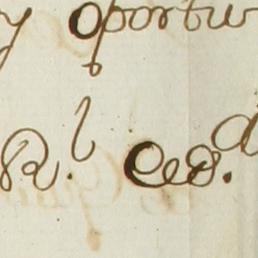 y oportu
R.l Ceď.